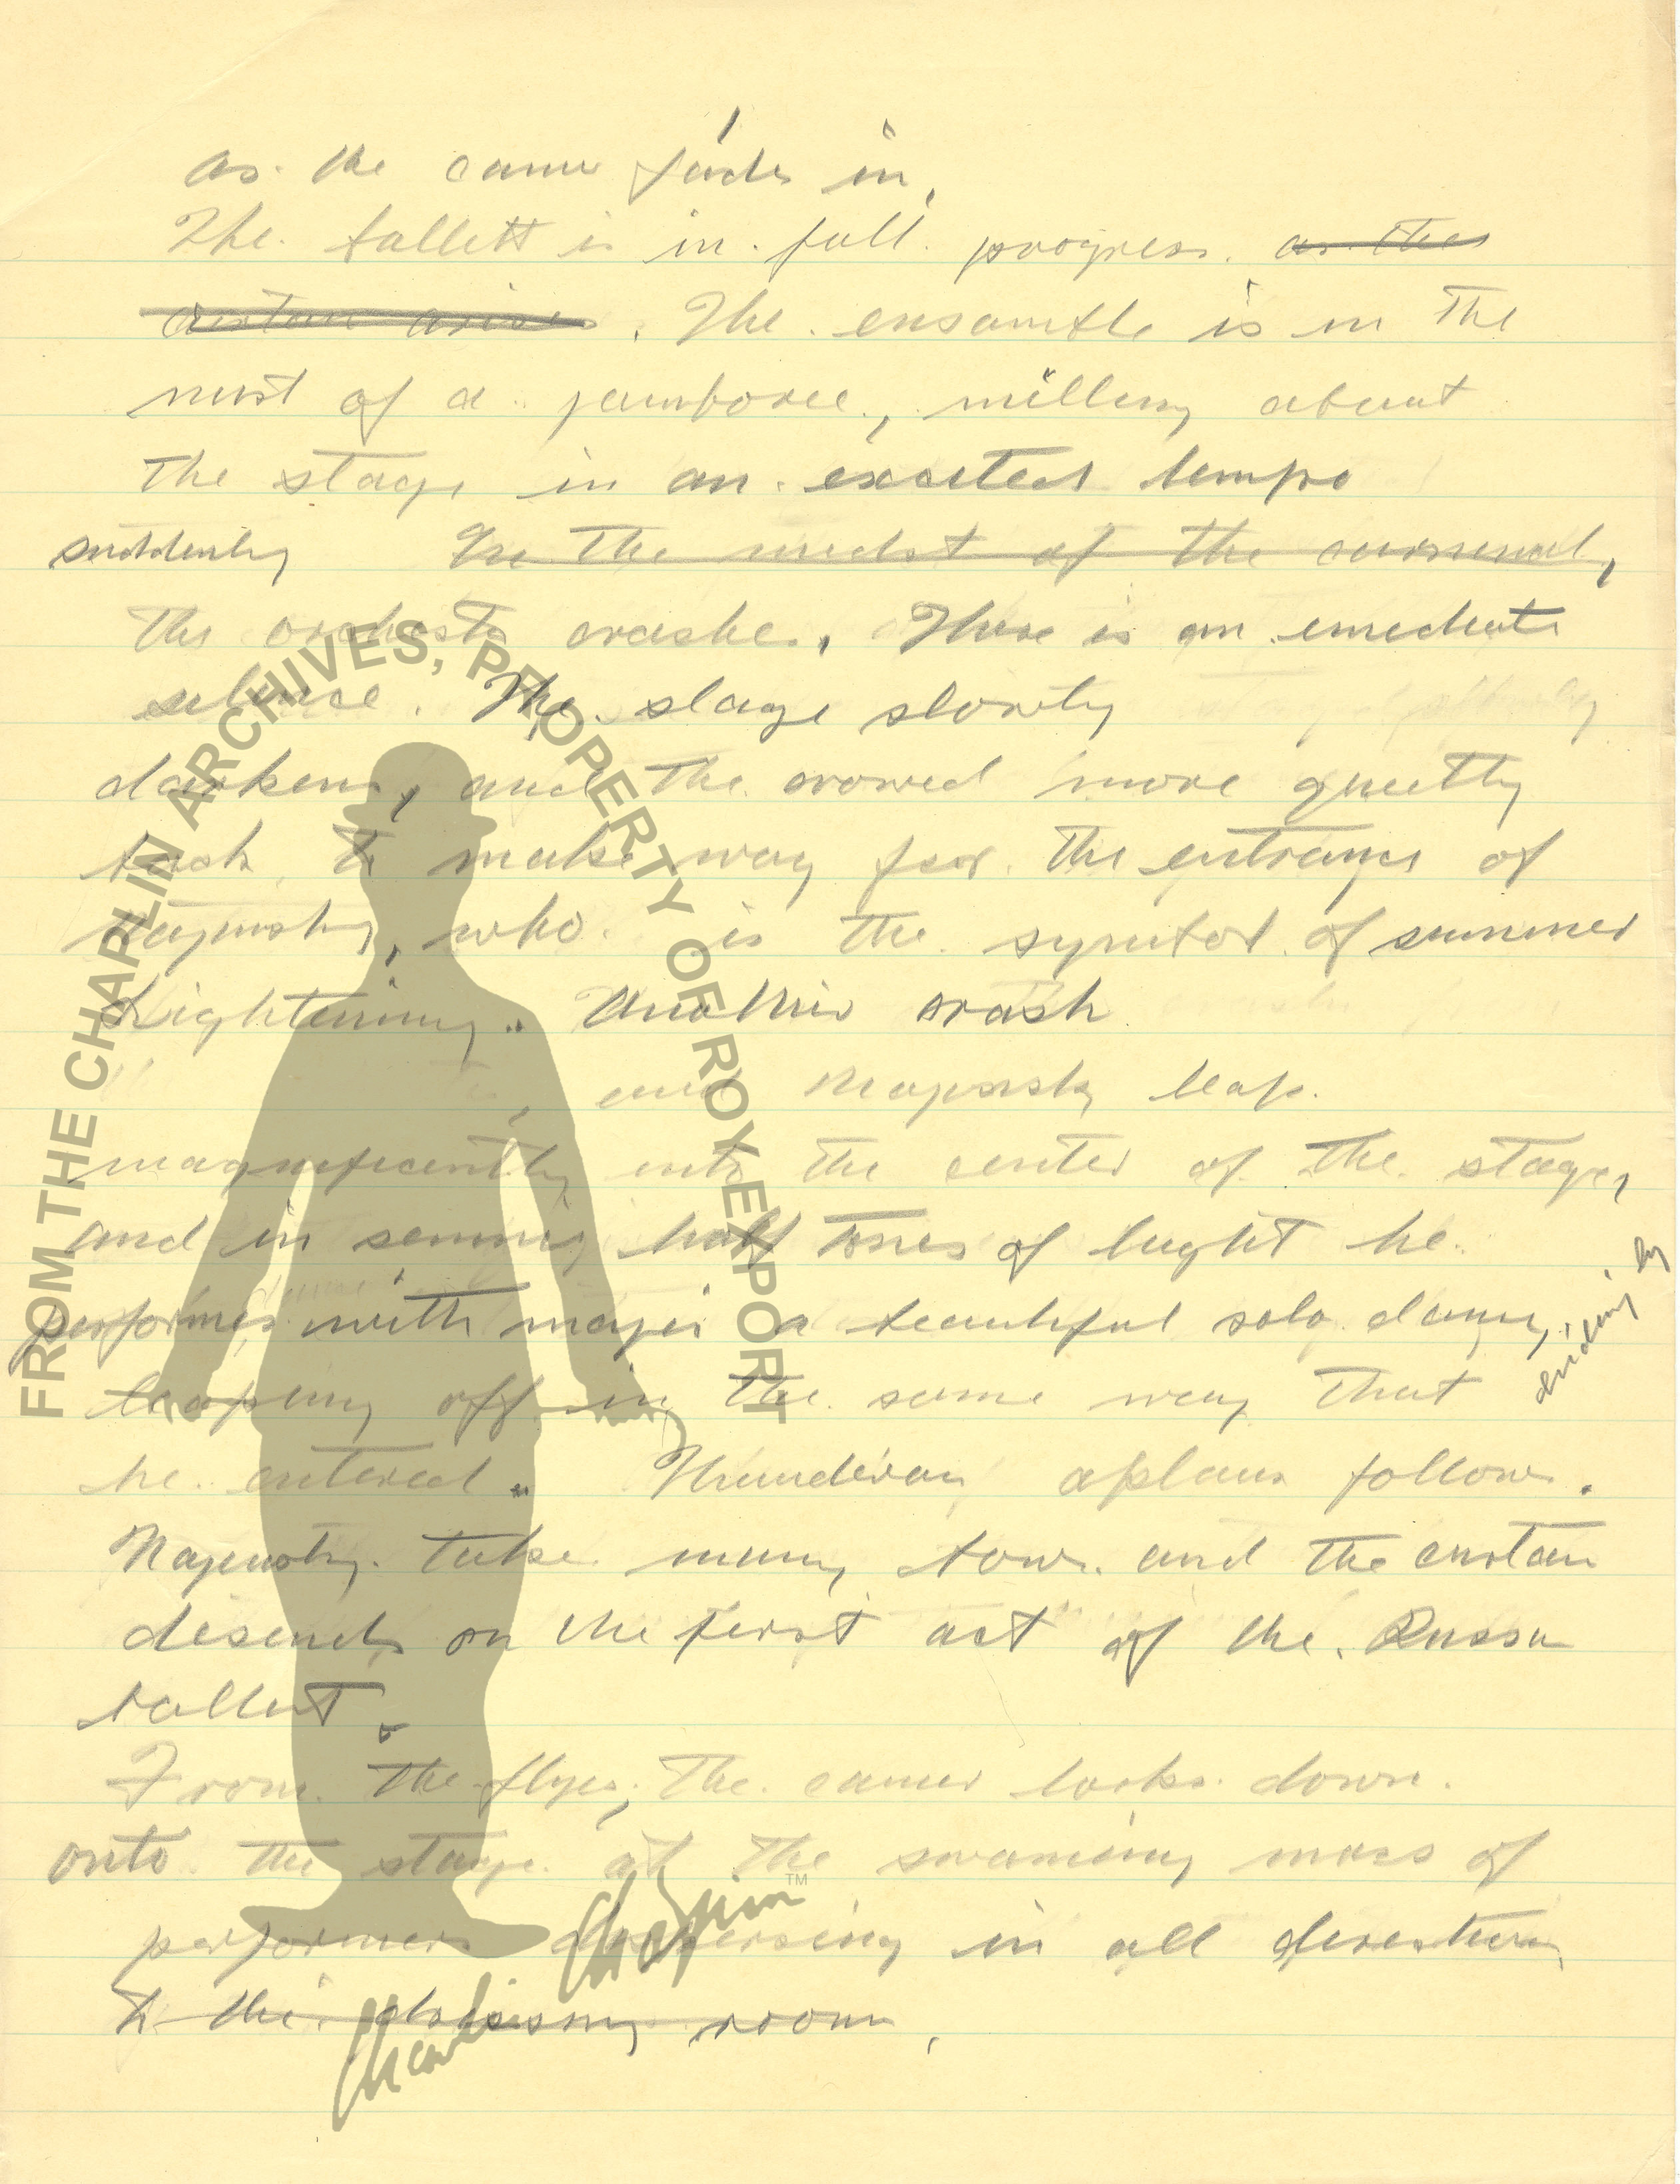 as the camer fades in,
The ballett is in full progress. as the
curtain arises. The ensamble is in the
mist of a jamboree, milling about
the stage in an excited tempo
suddenly In the midst of the carnival,
the orchestr crashes, There is an emediate
silence. The stage slowly
darkens, and the crowed move quietly
back to make way for the entrance of
who is the symbol of summer
Lightening. Another crash
and Naginsky leap.
magnificently into the center of the stage,
and in half tones of light he
performes with magic a beautiful solo dance,
leaping off in the same way that
he entered. Thunderous aplaus follows.
Naginsky take many bows and the curtain
desends on the first act of the Russian
ballett.
From the flyes, The camer looks down.
onto the stage at the swarming mass of
performers dispersing in all directions
to the dressing room,
FROM THE CHAPLIN ARCHIVES, PROPERTY OF ROY EXPORT
Charlie Chaplin
TM